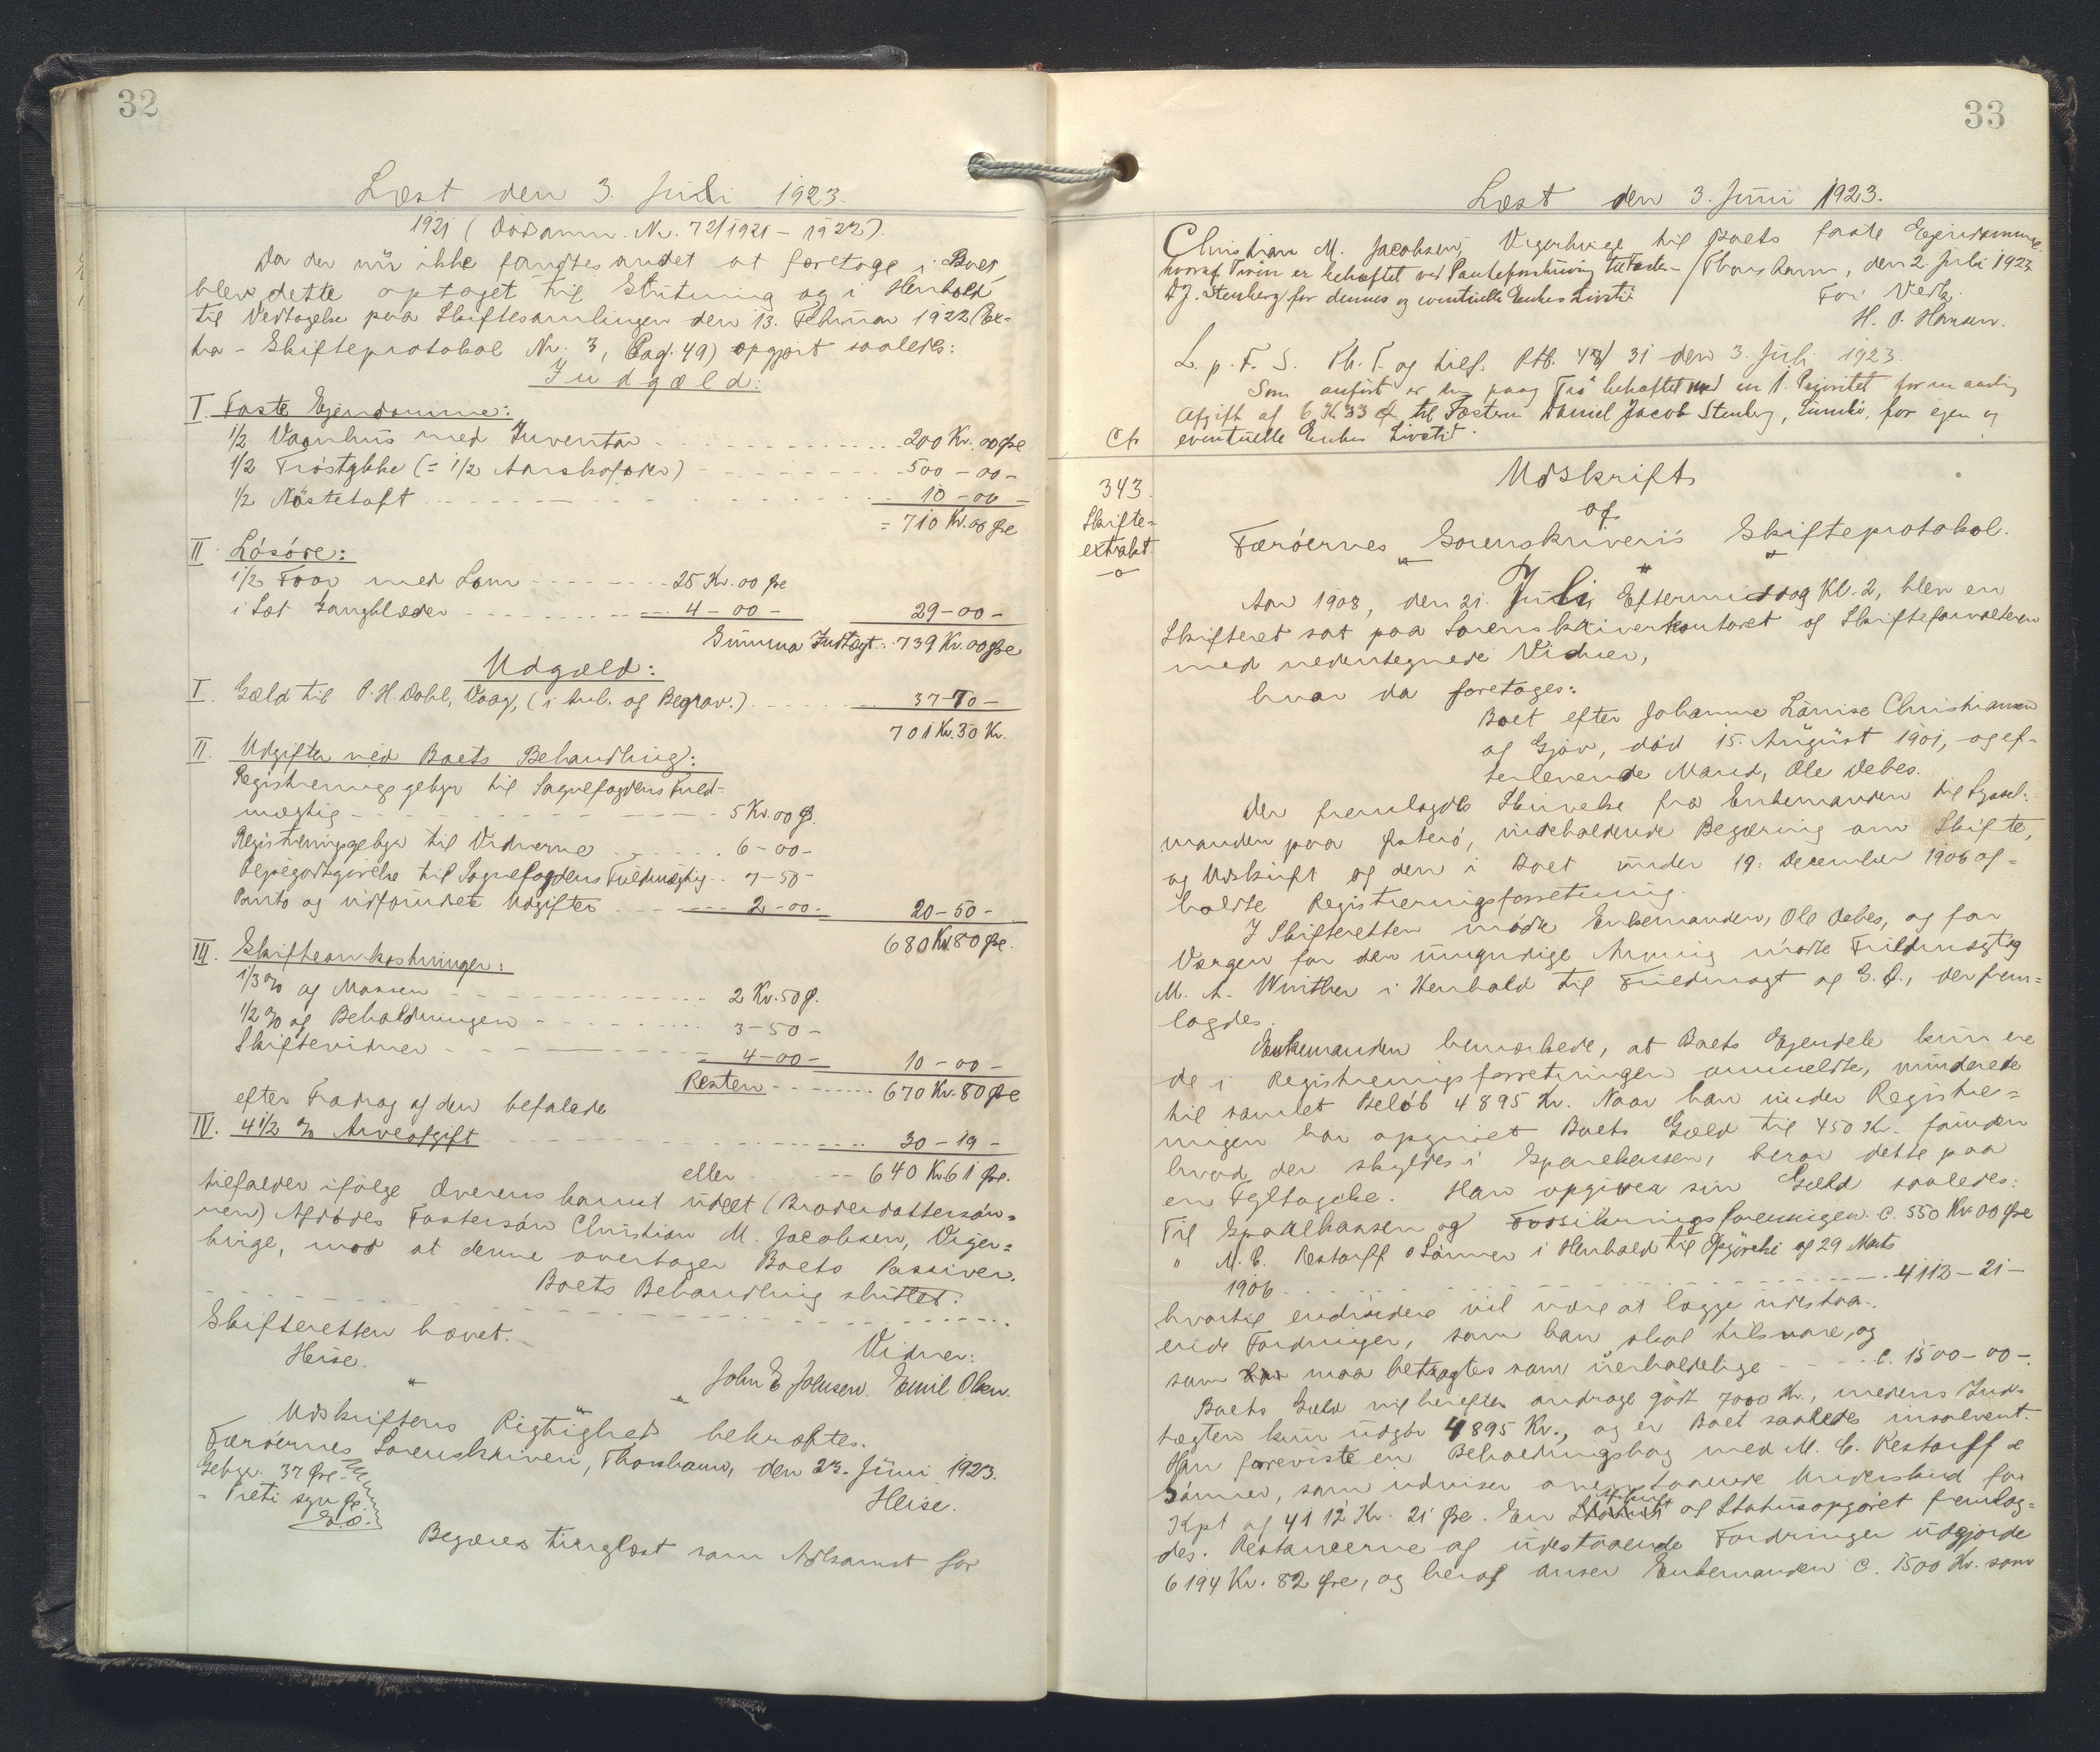 32
Læst den 3. Juli 1923.
1921 (Dödsanm. Nr. 72/1921-1922).
Da der nu ikke fandtes andet at foretage i Boet,
blev dette optaget til Slutning og i Henhold
til Vedtagelse paa Skiftesamlingen den 13. Februar 1922 (Ex-
tra-Skifteprotokol Nr. 3, Pag. 49) opgjort saaledes:
Indgæld:
I. Faste Ejendomme:
1/2 Vaanhus med Inventar 200 Kr. 00 Øre
1/2 Tröstykke (= 1/2 Aarskofoder) 500 - 00 -
1/2 Nöstetoft 10 - 00 -
= 710 Kr. 00 Øre
II. Lösöre:
1/2 Faar med Lam 25 Kr. 00 Øre
1 Sæt Gangklæder 4 - 00 - 29 - 00 -
Summa Indtægt 739 Kr. 00 Øre
Udgæld:
I. Gæld til P. H. Dahl, Vaag, (i hul. og Begrav.) 37 - 70 -
701 Kr. 30 Kr.
II. Udgifter ved Boets Behandling:
Registreringsgebyr til Sognefogdens Fuld-
mægtig 5 Kr. 00 Ø.
Registreringsgebyr til Vidnerne 6 - 00 -
Rejsegodtgörelse til Sognefogdens Fuldmægtig 7 - 50 -
Porto og uforudset Udgifter 2 - 00 - 20 - 50 -
680 Kr. 80 Øre.
III. Skifteomkostninger:
1/3 % af Massen 2 Kr. 50 Ø.
1/2 % af Beholdningen 3 - 50 -
Skiftevidner 4 - 00 - 10 - 00 -
Resten 670 Kr. 80 Øre
efter Fradrag af den befalede
IV. 4 1/2 % Arveafgift 30 - 19 -
eller 640 Kr 61 Øre.
tilfalder ifölge Overenskomst udlagt (Broderdattersön-
nen) Afdödes Fostersön Christian M. Jacobsen, Viger-
birge, mod at denne overtager Boets Passiver.
Boets Behandling sluttet.
Skifteretten hævet.
Heise. Vidner:
John E Joensen. Emil Olsen.
Udskriftens Rigtighed bekræftes.
Færöernes Sorenskriveri, Thorshavn, den 23. Juni 1923.
Gebyr. 37 Øre. Heise.
- Treti syv Øre
Begæres tinglæst som Adkomst for
33
Læst den 3. Juni 1923.
Christian M. Jacobsen, Vigerbirge til Boets faste Ejendomme,
hvoraf Tröen er behæftet ved Panteforskrivning til
D J. Stenberg for dennes og eventuelle Enkes Livstid. / Thorshavn, den 2. Juli 1923
For Vedk.
H. P. Hansen.
L. p. F. S. Pb. T. og tilf. Ptb. 31 den 3. Juli 1923.
Som anfört er behæftet med en 1. Prioritet for en aarlig
Afgift af 6 K 33 Ø, til Fæsteren Daniel Jacob Stenberg, Sumbö, for egen og
Cfr eventuelle Enkes Livstid.
343.
Skifte-
extrakt.
Udskrift
af
Færöernes Sorenskriveris Skifteprotokol.
Aar 1908, den 21. Juli, Eftermiddag Kl. 2, blev en
Skifteret sat paa Sorenskriverkontoret af Skifteforvalteren
med nedentegnede Vidner,
hvor da foretages:
Boet efter Johanne Lauise Christiansen
af Gjov, död 15. August 1901, og ef-
terlevende Mand, Ole Debes.
Der fremlagdes Skrivelse fra Enkemanden til Syssel-
manden paa Österö, indeholdende Begæring om Skifte,
og Udskrift af den i Boet under 19. December 1906 af-
holdte Registreringsforretning.
I Skifteretten mödte Enkemanden, Ole Debes, og for
Værgen for den umyndige Arving mödte Fuldmægtig
M. A. Winther i Henhold til Fuldmagt af G. D., der frem-
lagdes.
Enkemanden bemærkede, at Boets Ejendele kun ere
de i Registreringsforretningen anmeldte, vurderede
til samlet Belöb 4895 Kr. Naar han under Registre-
ringen har opgivet Boets Gæld til 450 Kr. foruden
hvad der skyldes i Sparekassen, beror dette paa
en Fejltagelse. Han opgiver sin Gæld saaledes:
Til Sparekassen og Forsikringsforeningen c. 550 Kr. 00 Øre
" M. C. Restorff & Sönner i Henhold til Opgörelse af 29 Marts
1906 4112 - 21 -
hvortil endvidere vil være at lægge udestaa-
ende Fordringer, som han skal tilsvare, og
som maa betragtes som uerholdelige c. 1500 - 00 -.
Boets Gæld vil herefter andrage godt 7000 Kr., medens Ind-
tægten kun udgör 4895 Kr., og er Boet saaledes insolvent.
Han foreviste en Beholdningsbog med M. C. Restorff &
Sönner, som udviser ovenstaaende Underskud for
Kpt af 4112 Kr. 21 Øre. En Udskrift af Statusopgöret fremlag-
des. Restancerne af udestaaende Fordringer udgjorde
6194 Kr. 82 Øre, og heraf anser Enkemanden c. 1500 Kr. som